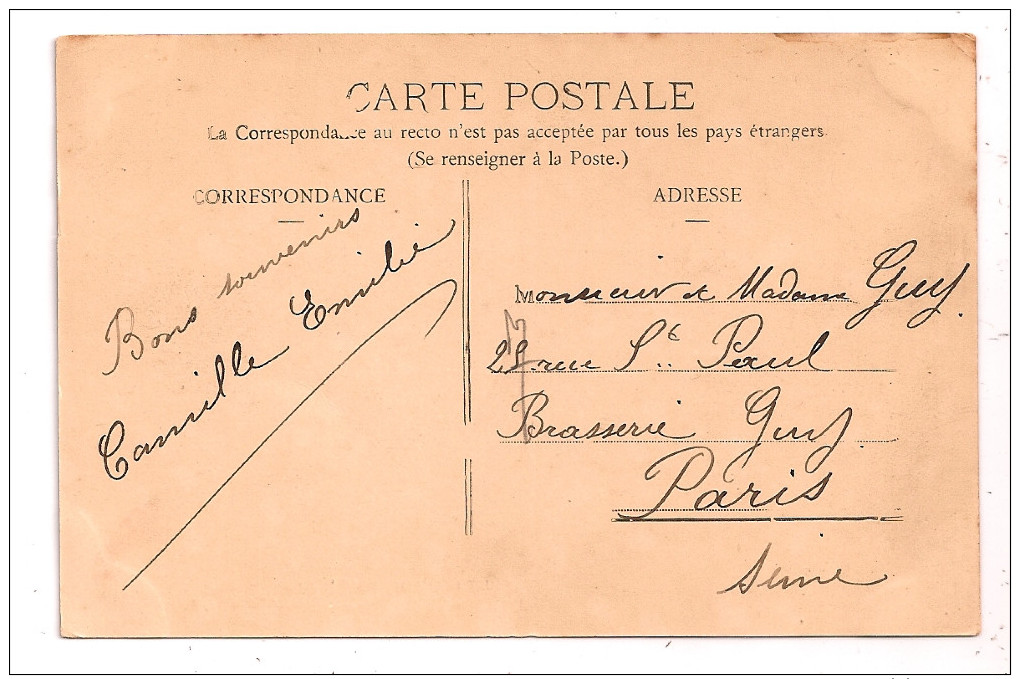 CARTE POSTALE
La Correspondance au recto n'est pas acceptée par tous les pays étrangers.
(Se renseigner à la Poste.)
CORRESPONDANCE
Bons souvenirs
Camille Emilie
ADRESSE
Monsieur et Madame Guy.
rue St Paul
Brasserie Guy.
Paris
Seine